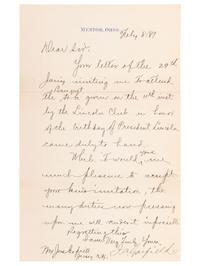 MENTOR, OHIO.
Feby 8/89
Dear Sir.
Your letter of the 29th
Jany inviting me to attend
Banquet
the to be given on the 11th inst
by the Lincoln Club in honor
of the birthday of President Lincoln
came duly to hand.
While it would give me
much pleasure to accept
your kind invitation, the
many duties now pressing
upon me will render it impossible
Regretting this
I am Very Truly Yours,
Garfield